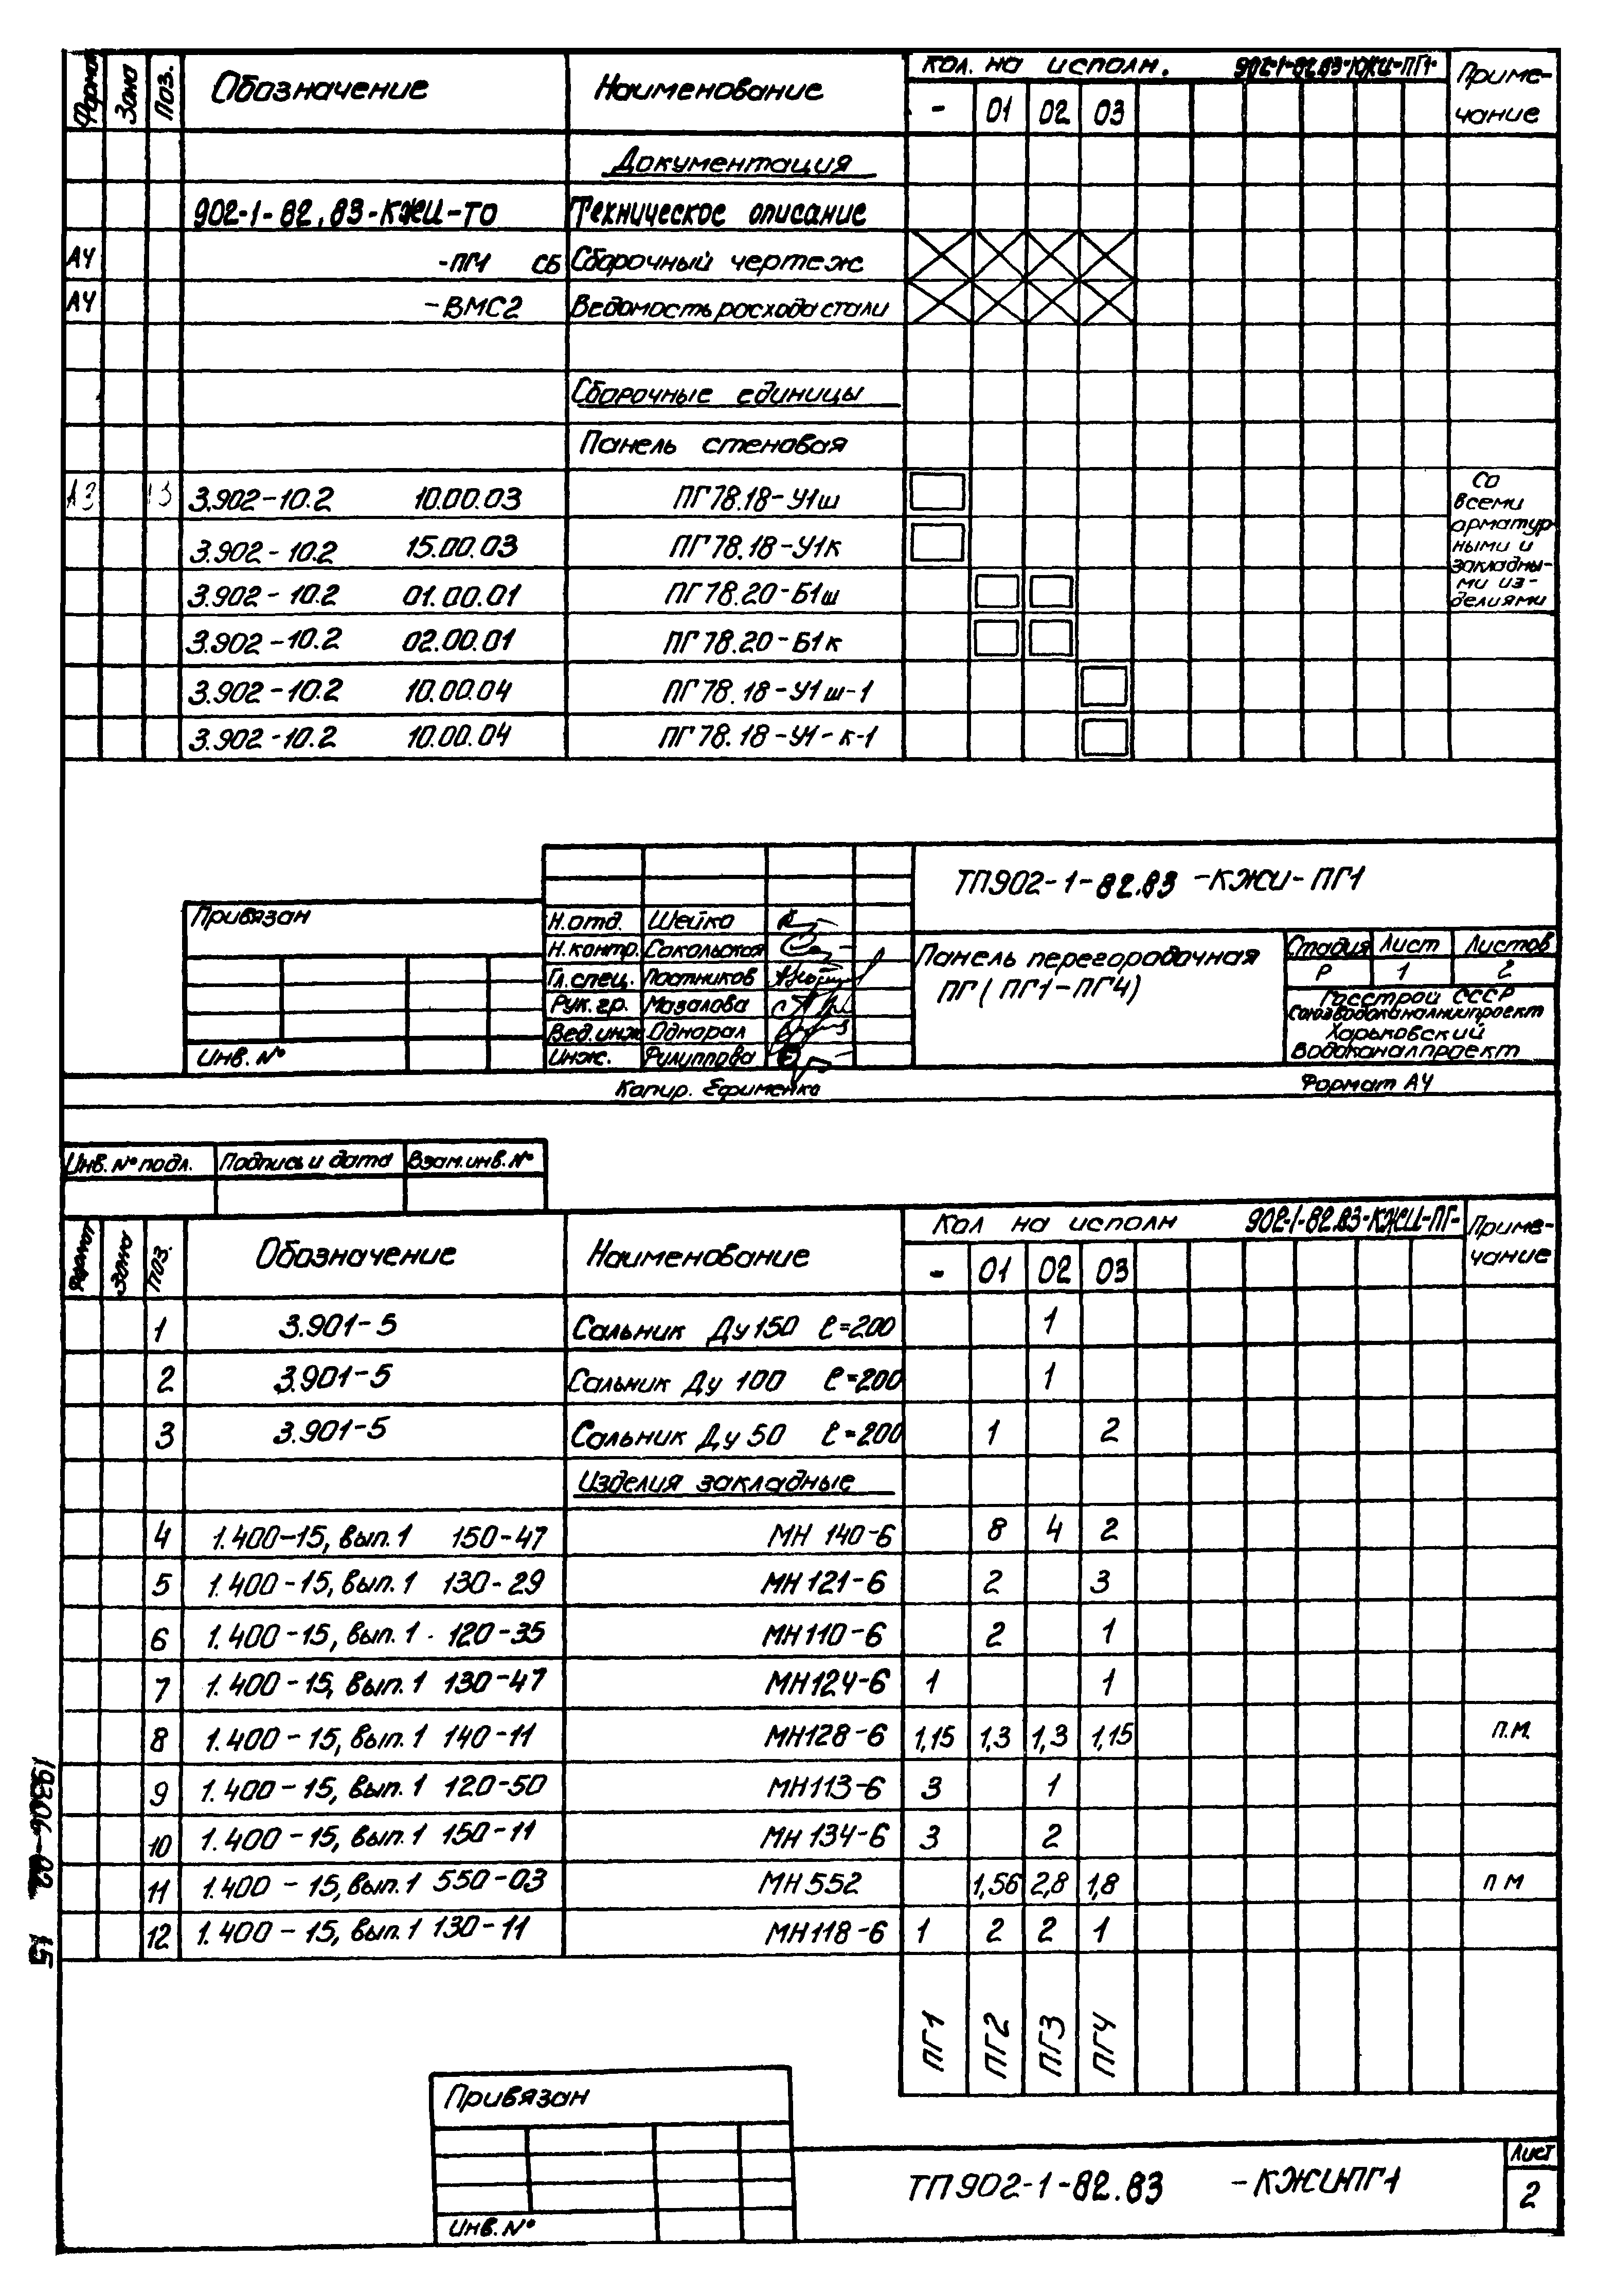 Формат Зона Поз. Обозначение Наименование Кол. на исполн. 902-1-82.83-КЖИ-ПГ1- Примечание
- 01 02 03
Документация
902-1-82.83-КЖИ-ТО Техническое описание
А4 -ПГ1 СБ Сборочный чертеж
А4 -ВМС2 Ведомость расхода стали
Сборочные единицы
Панель стеновая
А3 13 3.902-10.2 10.00.03 ПГ78.18-У1ш
3.902-10.2 15.00.03 ПГ78.18-У1к
3.902-10.2 01.00.01 ПГ78.20-Б1ш
3.902-10.2 02.00.01 ПГ78.20-Б1к
3.902-10.2 10.00.04 ПГ78.18-У1ш-1
3.902-10.2 10.00.04 ПГ78.18-У1-к-1
Со
всеми
арматур-
ными и
закладны-
ми из-
делиями
ТП902-1-82.83 -КЖИ-ПГ1
Привязан
Н.отд. Шейко
Н.контр. Сокольская
Гл.спец. Постников
Рук.гр. Мазалова
Вед.инж Однорал
Инж. Филиппова
Инв. №
Панель перегородочная
ПГ (ПГ1-ПГ4)
Стадия Лист Листов
Р 1 2
Госстрой СССР
Союзводоканалниипроект
Харьковский
Водоканалпроект
Копир. Ефименко Формат А4
Инв. № подл. Подпись и дата Взам.инв. №
Формат Зона Поз. Обозначение Наименование Кол на исполн 902-1-82.83-КЖИ-ПГ- Примечание
- 01 02 03
1 3.901-5 Сальник Ду150 ℓ=200 1
2 3.901-5 Сальник Ду 100 ℓ=200 1
3 3.901-5 Сальник Ду50 ℓ=200 1 2
Изделия закладные
4 1.400-15, вып.1 150-47 МН 140-6 8 4 2
5 1.400-15, вып.1 130-29 МН121-6 2 3
6 1.400-15, вып.1 120-35 МН110-6 2 1
7 1.400-15, вып.1 130-47 МН124-6 1 1
8 1.400-15, вып.1 140-11 МН128-6 1,15 1,3 1,3 1,15 п.м.
9 1.400-15, вып.1 120-50 МН113-6 3 1
10 1.400-15, вып.1 150-11 МН134-6 3 2
11 1.400-15, вып.1 550-03 МН552 1,56 2,8 1,8 п м
12 1.400-15, вып.1 130-11 МН118-6 1 2 2 1
ПГ1 ПГ2 ПГ3 ПГ4
19306-02 15
Привязан
Инв. №
ТП902-1-82.83 -КЖИ-ПГ1
Лист
2